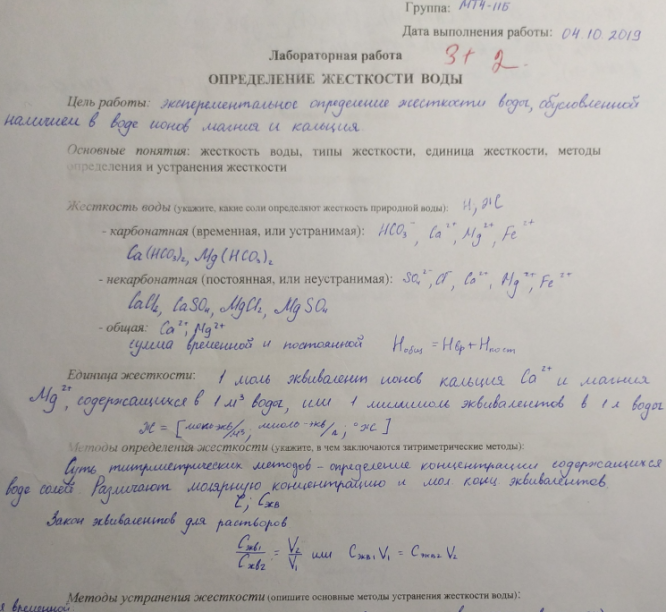 Группа: МТ4-11Б
Дата выполнения работы: 04 10 2019
Лабораторная работа 3+ 2.
ОПРЕДЕЛЕНИЕ ЖЕСТКОСТИ ВОДЫ
Цель работы: эксперементальное определение жесткости водог, обусловленной
наличием в воде ионов магния и кальция
Основные понятия: жесткость воды, типы жесткости, единица жесткости, методы
определения и устранения жесткости
Жесткость воды (укажите, какие соли определяют жесткость природной воды): Н, Ж
- карбонатная (временная, или устранимая): HCO₃⁻, Ca²⁺, Mg²⁺, Fe²⁺
Ca(HCO₃)₂, Mg(HCO₃)₂
- некарбонатная (постоянная, или неустранимая): SO₄²⁻, Cl⁻, Ca²⁺, Mg²⁺, Fe²⁺
CaCl₂, CaSO₄, MgCl₂, MgSO₄
- общая: Ca²⁺, Mg²⁺
сумма временной и постоянной Нобщ = Нвр + Нпост
Единица жесткости: 1 моль эквивалент ионов кальция Ca²⁺ и магния
Mg²⁺, содержащихся в 1 м³ водог, или 1 миллимоль эквивалентов в 1 л водог
Ж = [моль-экв/м³, ммоль-экв/л; °Ж]
Методы определения жесткости (укажите, в чем заключаются титриметрические методы):
Суть титриметрических методов - определение концентрации содержащихся
воде солей. Различают молярную концентрацию и мол конц эквивалентов.
C; Cэкв
Закон эквивалентов для растворов
Cэкв1/Cэкв2 = V₂/V₁ или Cэкв1 V₁ = Cэкв2 V₂
Методы устранения жесткости (опишите основные методы устранения жесткости воды):
временной